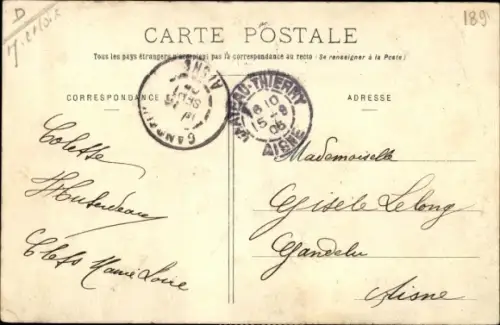 D
189
CARTE POSTALE
Tous les pays étrangers n'acceptent pas la correspondance au recto (Se renseigner à la poste)
CORRESPONDANCE
ADRESSE
AISNE
CHATEAU-THIERRY
16 10
15-9
06
AISNE
Colette
Mademoiselle
Gisèle Lelong
Gandelu
Aisne
Marie Loire